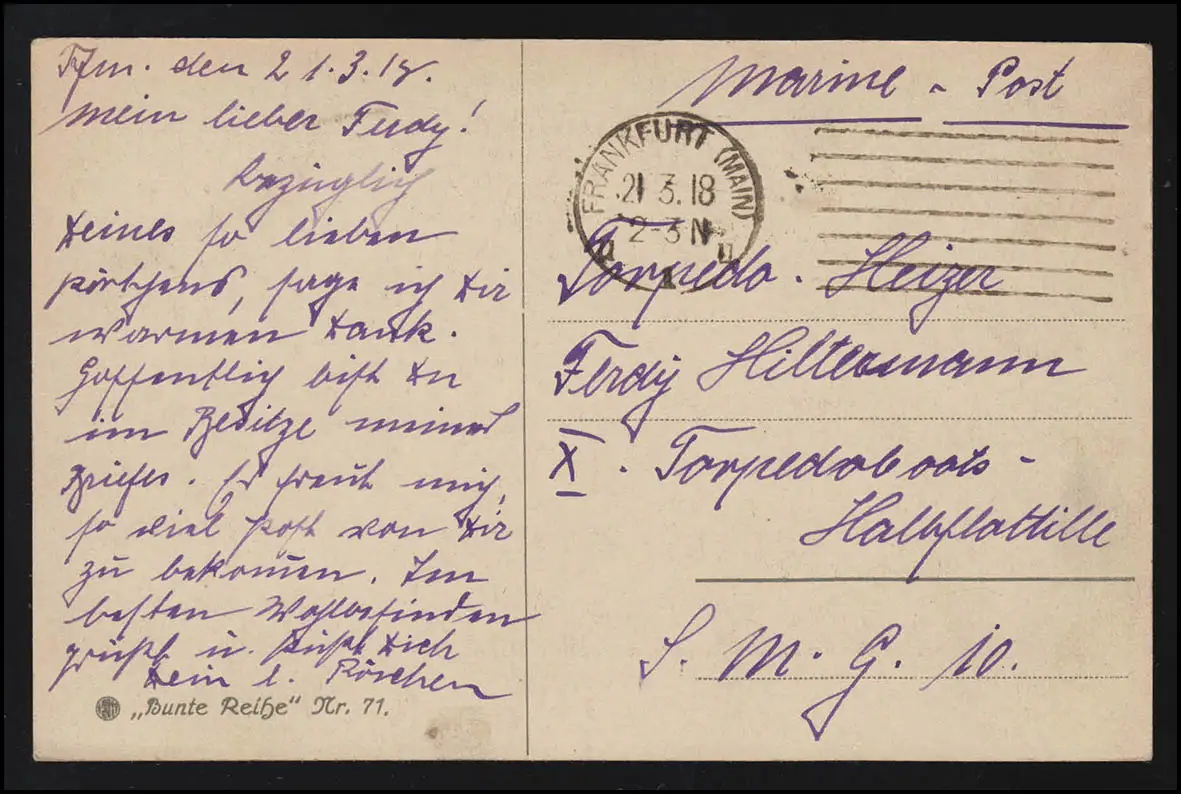 Ffm. den 21.3.18.
Mein lieber Ferdy!
Bezüglich
Deines so lieben
sage ich Dir
warmen Dank.
Hoffentlich bist Du
im Besitze meines
Briefes. Es freut mich,
so viel Post von Dir
zu bekommen. Im
besten Wohlbefinden
grüßt u. küßt Dich
Dein l. Röschen
„Bunte Reihe" Nr. 71.
Marine - Post
FRANKFURT (MAIN)
21 3. 18
2-3 N
Torpedo - Heizer
Ferdy Hiltermann
X. Torpedoboots-
Halbflottille
S. M. G. 10.